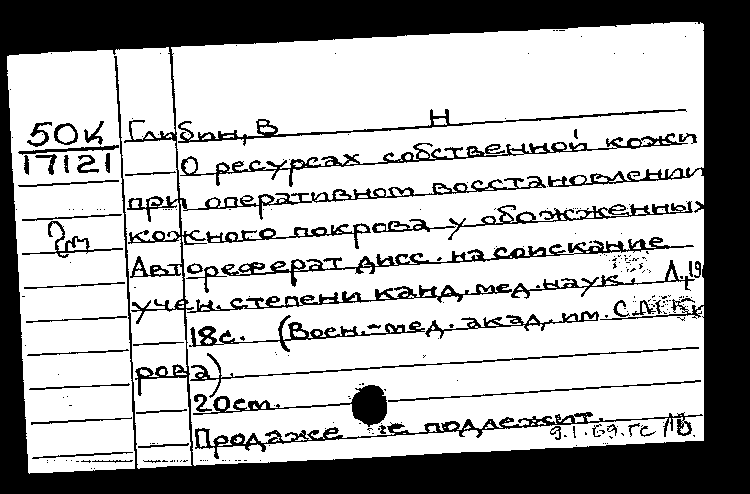 50К
17121
Глибин, В Н
О ресурсах собственной кожи
при оперативном восстановлении
кожного покрова у обожженных
Автореферат дисс. на соискание
учен. степени канд. мед. наук. Л.,
18с. (Воен.-мед. акад. им. С.М. Ки
рова).
20см.
Продаже не подлежит.
9.I.69.гс